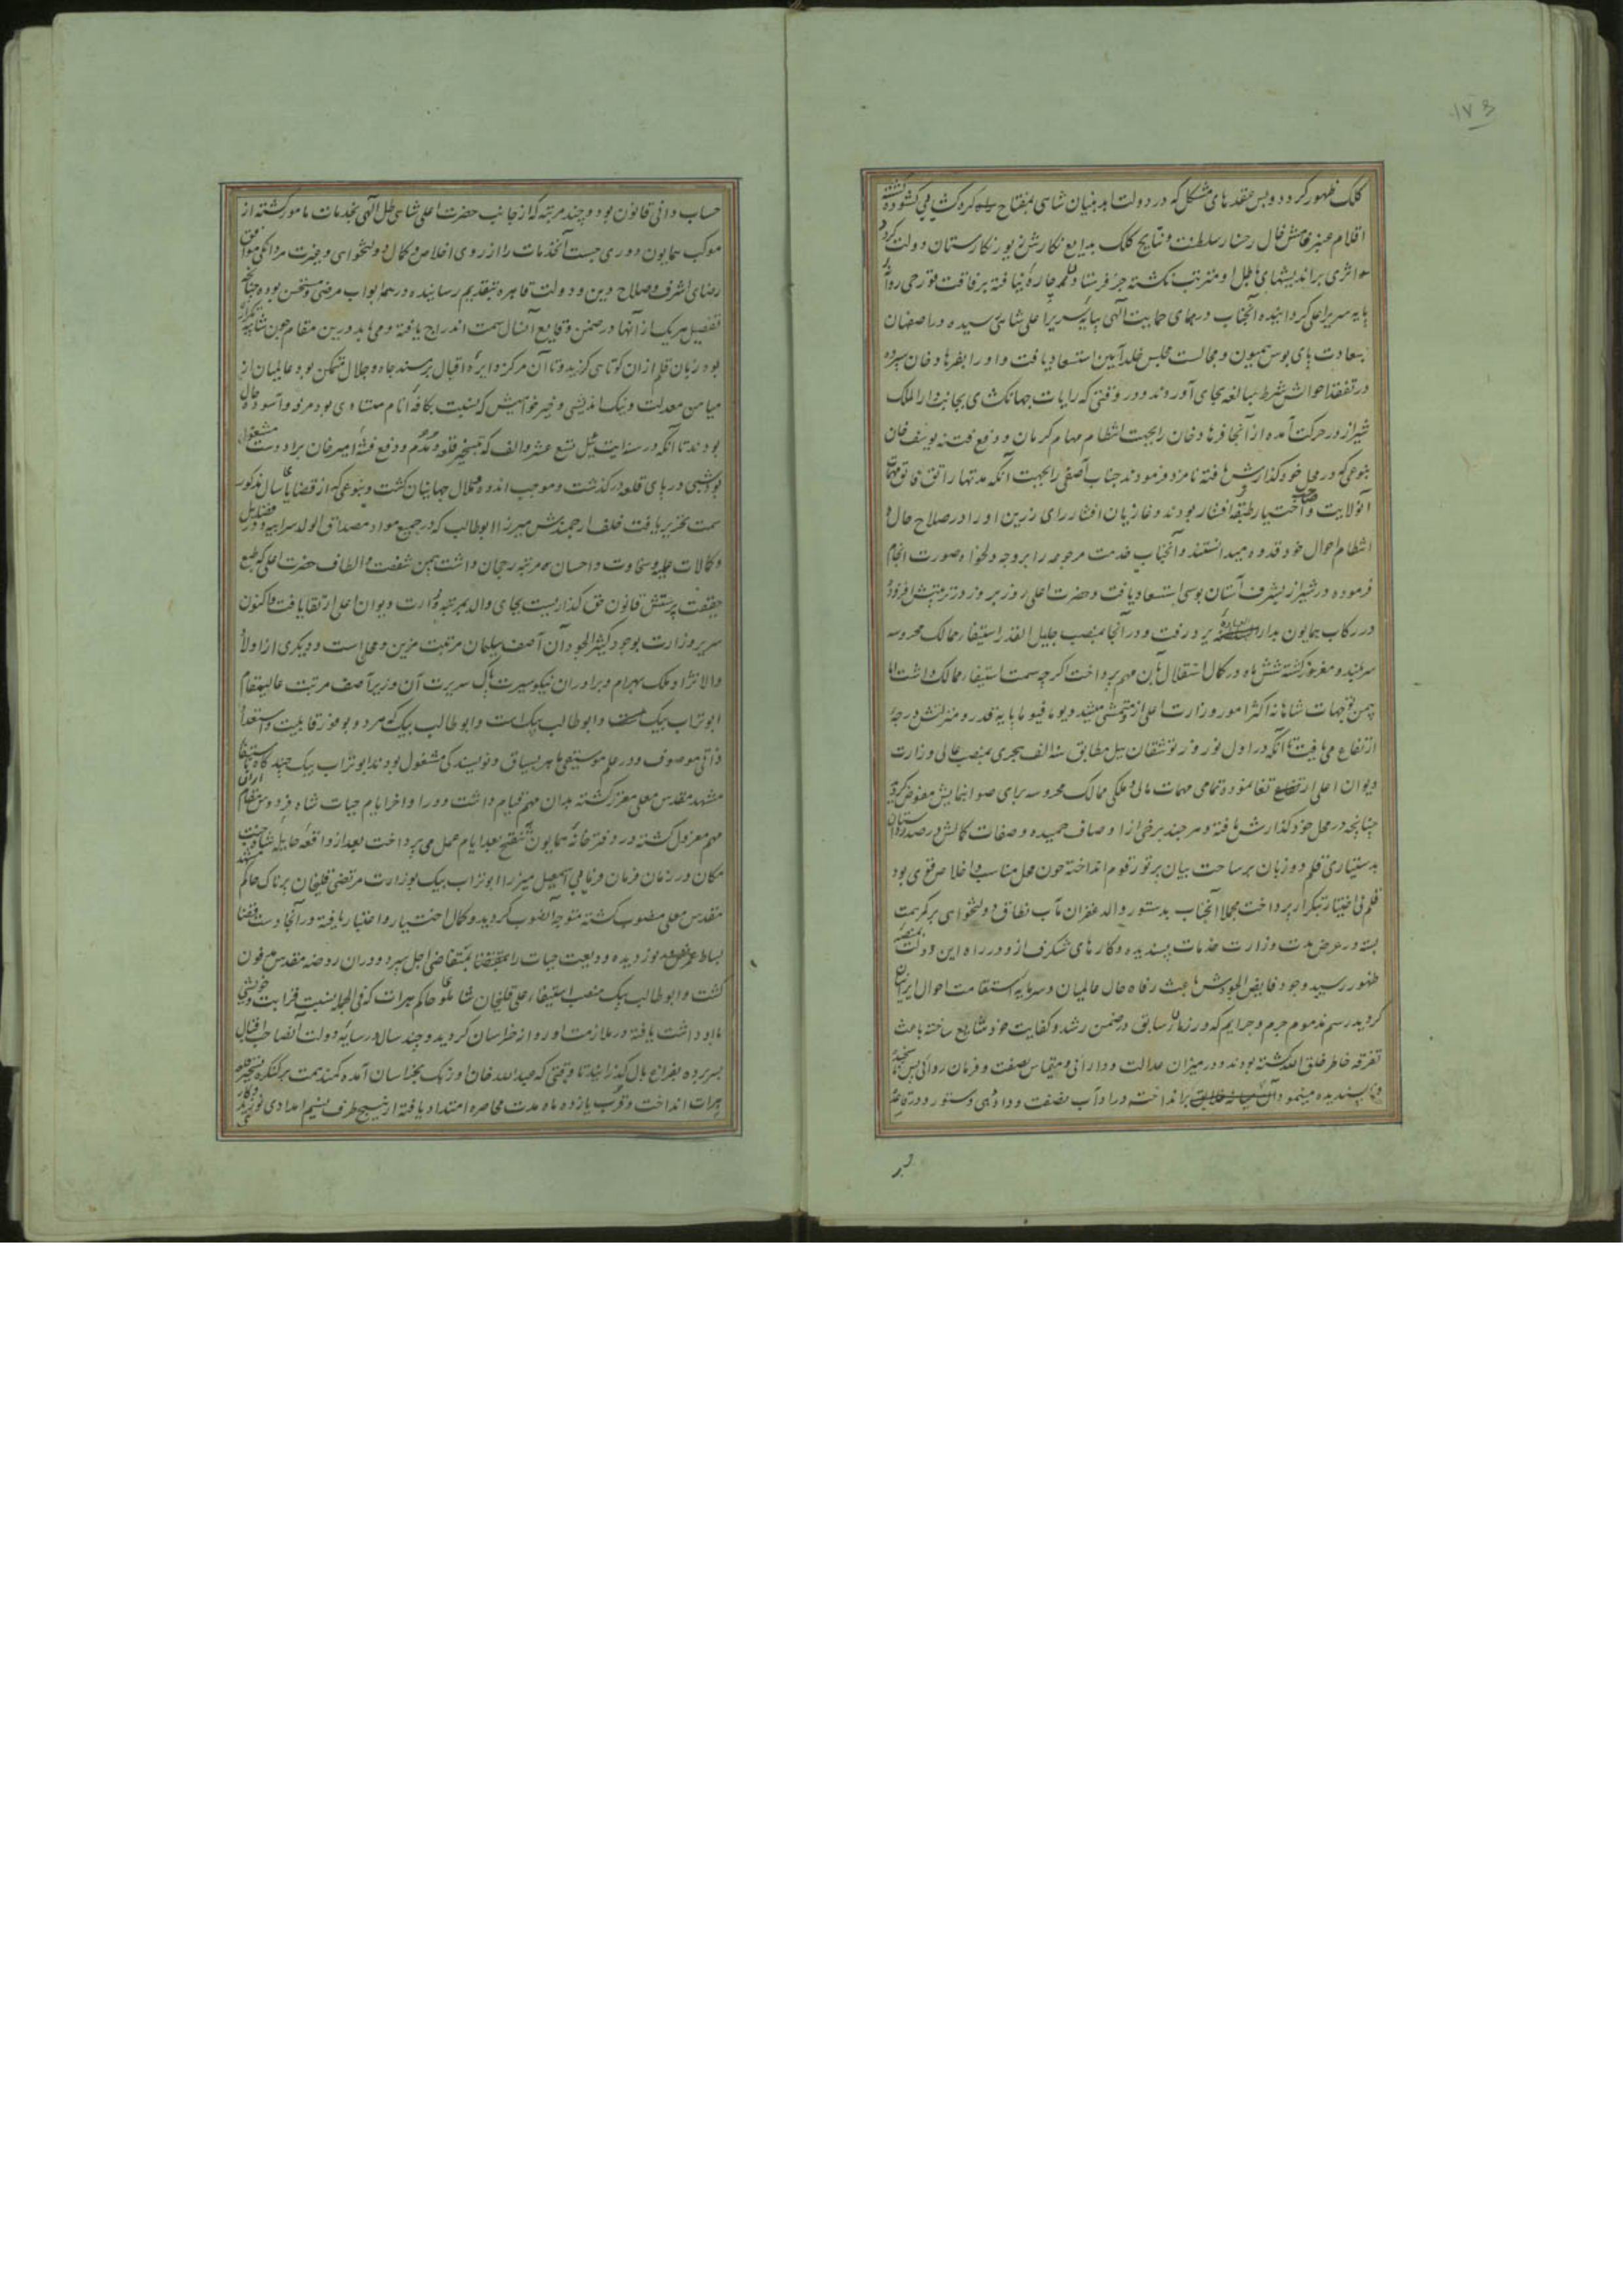 ۱۷۳
کلک ظهور کرد و بس عقدهای مشکل که در دولت ابد بنیان شاهی بمفتاح کره کشایی کشوده کشته
اقلام عنبر فامش خال رخسار سلطنت و نتایج کلک بدایع نکارش زیور نکارستان دولت کردد
اثری براندیشهای باطل او مترتب نکشته جز فرستادن چاره نیافته برفاقت قورچی روانه
پایه سریر اعلی کردانیده آنجناب در همای حمایت الهی بپایه سریر اعلی شاهی رسیده در اصفهان
بسعادت پای بوس همیون و مجالست مجلس خلد آیین استسعاد یافت و او را بفرهاد خان سپرده
در تفقد احوالش شرط مبالغه بجای آوردند و در وقتی که رایات جهانکشای بجانب دار الملک
شیراز در حرکت آمده از آنجا فرهاد خان را بجهت انتظام مهام کرمان و دفع فتنه یوسف خان
بنوعی که در محل خود کذارش یافته نامزد فرمودند جناب آصفی را بجهت آنکه مدتها راتق و فاتق مهمات
آنولایت و صاحب اختیار طبقه افشار بودند و غازیان افشار رای رزین او را در صلاح حال و
انتظام احوال خود قدوه میدانستند و آنجناب خدمت مرجوعه را بر وجه دلخواه صورت انجام
فرموده در شیراز بشرف آستان بوسی استسعاد یافت و حضرت اعلی روز بروز در مرتبتش افزوده
در رکاب همایون بدار السلطنه یزد رفت و در آنجا بمنصب جلیل القدر استیفاء ممالک محروسه
سربلند و مفرور کشته شش ماه در کمال استقلال بآن مهم پرداخت اکرچه سمت استیفاء ممالک داشت اما
بیمن توجهات شاهانه اکثر امور وزارت اعلی از او متمشی میشد و یوما فیوما پایه قدر و منزلتش درجه
ارتفاع می یافت تا آنکه در اول نوروز توشقان ییل مطابق سنه الف هجری بمنصب عالی وزارت
دیوان اعلی ارتفاع نموده تمامی مهمات مالی و ملکی ممالک محروسه برای صوابنمایش مفوض کردید
چنانچه در محل خود کذارش یافته و هر چند برخی از اوصاف حمیده و صفات کمالش در صدر داستان
بدستیاری قلم دو زبان بر ساحت بیان پرتو رقوم انداخته چون محل مناسب و اخلاص قوی بود
قلم بی اختیار بتکرار پرداخت مجملا آنجناب بدستور والد غفران مآب نطاق دولتخواهی بر کمر همت
بسته در عرض مدت وزارت خدمات پسندیده و کارهای شکرف ازو در راه این دولت بمنصه
ظهور رسید و وجود فایض الجودش باعث رفاه حال عالمیان و سرمایه استقامت احوال ایرانیان
کردید رسم مذموم جرم و جرایم که در زمان سابق در ضمن رشد و کفایت خود شایع ساخته باعث
تفرقه خاطر خلق الله کشته بودند و در میزان عدالت و دارائی و مقیاس نصفت و فرمان روائی بس سنجیده
پسندیده مینمود برانداخت و در آداب نصفت و داد دهی دستور
حساب دانی قانون بود و چند مرتبه که از جانب حضرت اعلی شاهی ظل الهی بخدمات مامور کشته از
موکب همایون دوری جست آنخدمات را از روی اخلاص و کمال دولتخواهی و غیرت مردانکی موافق
رضای اشرف و صلاح دین و دولت قاهره بتقدیم رسانیده در همه ابواب مرضی و مستحسن بوده چنانچه
تفصیل هر یک از آنها در ضمن وقایع آنسال سمت اندراج یافته و می یابد درین مقام چون شایبه تکرار
بود زبان قلم از آن کوتاهی کزید و تا آن مرکز دایره اقبال بر مسند جاه و جلال متمکن بود عالمیان از
میامن معدلت و نیک اندیشی و خیر خواهیش که نسبت بکافه انام مساوی بود مرفه و آسوده حال
بودند تا آنکه در سنه ایت ییل تسع عشر و الف که بتسخیر قلعه دمدم و دفع فتنه امیر خان برادوست مشغول
بود شبی در پای قلعه درکذشت و موجب اندوه و ملال جهانیان کشت و بنوعی که از قضایای سال مذکور
سمت تحریر یافت خلف ارجمندش میرزا ابوطالب که در جمیع مواد مصداق الولد سر ابیه و در فضایل
و کمالات علیه و سخاوت و احسان مرتبه رجحان داشت بیمن شفقت و الطاف حضرت اعلی که طبع
حقیقت پرستش قانون حق کذاریست بجای والد بمرتبه وزارت دیوان اعلی ارتقا یافت و اکنون
سریر وزارت بوجود کثیر الجود آن آصف سلیمان مرتبت مزین و محلی است و دیکری از اولاد
والا نژاد ملک بهرام و برادران نیکو سیرت پاک سریرت آن وزیر آصف مرتبت عالیمقام
ابوتراب بیک و ابوطالب بیک است و ابوطالب بیک که هر دو بوفور قابلیت و استعداد
ذاتی موصوف و در علم موسیقی ماهر بسیاق و نویسندکی مشغول بودند ابوتراب بیک چند کاه باستیفا
مشهد مقدس معلی معزز کشته بدان مهم قیام داشت و در اواخر ایام حیات شاه فردوس مقام از آن
مهم معزول کشته در دفتر خانه همایون بتنقیح بعد ایام عمل می پرداخت بعد از واقعه هایله شاه جنت
مکان در زمان فرمان فرمایی اسمعیل میرزا ابوتراب بیک بوزارت مرتضی قلیخان پرناک حاکم مشهد
مقدس معلی منصوب کشته متوجه آنصوب کردید و کمال اختیار و اعتبار یافته در آنجا دست قضا
بساط عمرش نوردیده و ودیعت حیات را بمتقاضی اجل سپرد و در آن روضه مقدس مدفون
کشت و ابوطالب بیک منصب استیفاء علی قلیخان شاملو حاکم هرات که فی الجمله نسبت قرابت و خویشی
با او داشت یافته در ملازمت او روانه خراسان کردید و چند سال در سایه دولت آنصاحب اقبال
بسر برده بفراغ بال کذرانید تا وقتی که عبدالله خان اوزبک بخراسان آمده کمند همت بر کنکره تسخیر قلعه
هرات انداخت و قرب یازده ماه مدت محاصره امتداد یافته از هیچ طرف نسیم امدادی نوزید